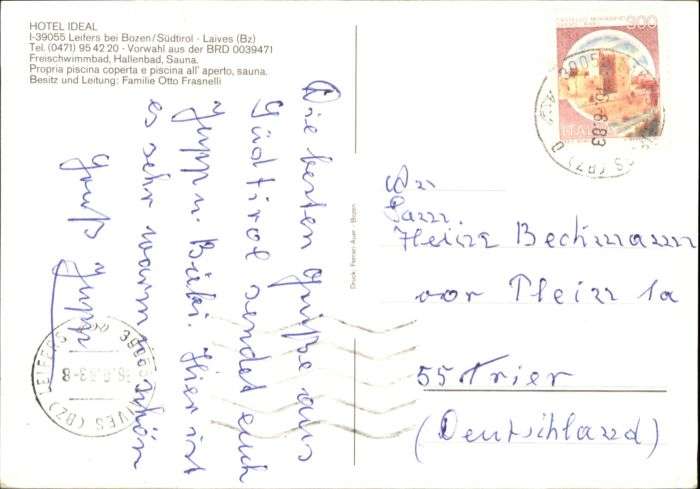 HOTEL IDEAL
I-39055 Leifers bei Bozen/Südtirol - Laives (Bz)
Tel. (0471) 95 42 20 - Vorwahl aus der BRD 0039471
Freischwimmbad, Hallenbad, Sauna.
Propria piscina coperta e piscina all' aperto, sauna.
Besitz und Leitung: Familie Otto Frasnelli
Die besten Grüße aus
Südtirol sendet euch
Jupp u. Bäbi. Hier ist
es sehr warm schön
Gruß Jupp
Druck: Ferrari-Auer - Bozen
300
An
Fam.
Heinz Beckmann
vor Plein 1a
55 Trier
(Deutschland)
LEIFERS (BZ)